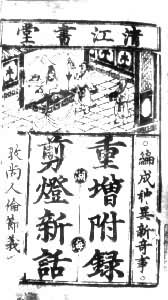 清江書堂
編成神異新奇事
重增附錄
剪燈新話
敦尚人倫節義